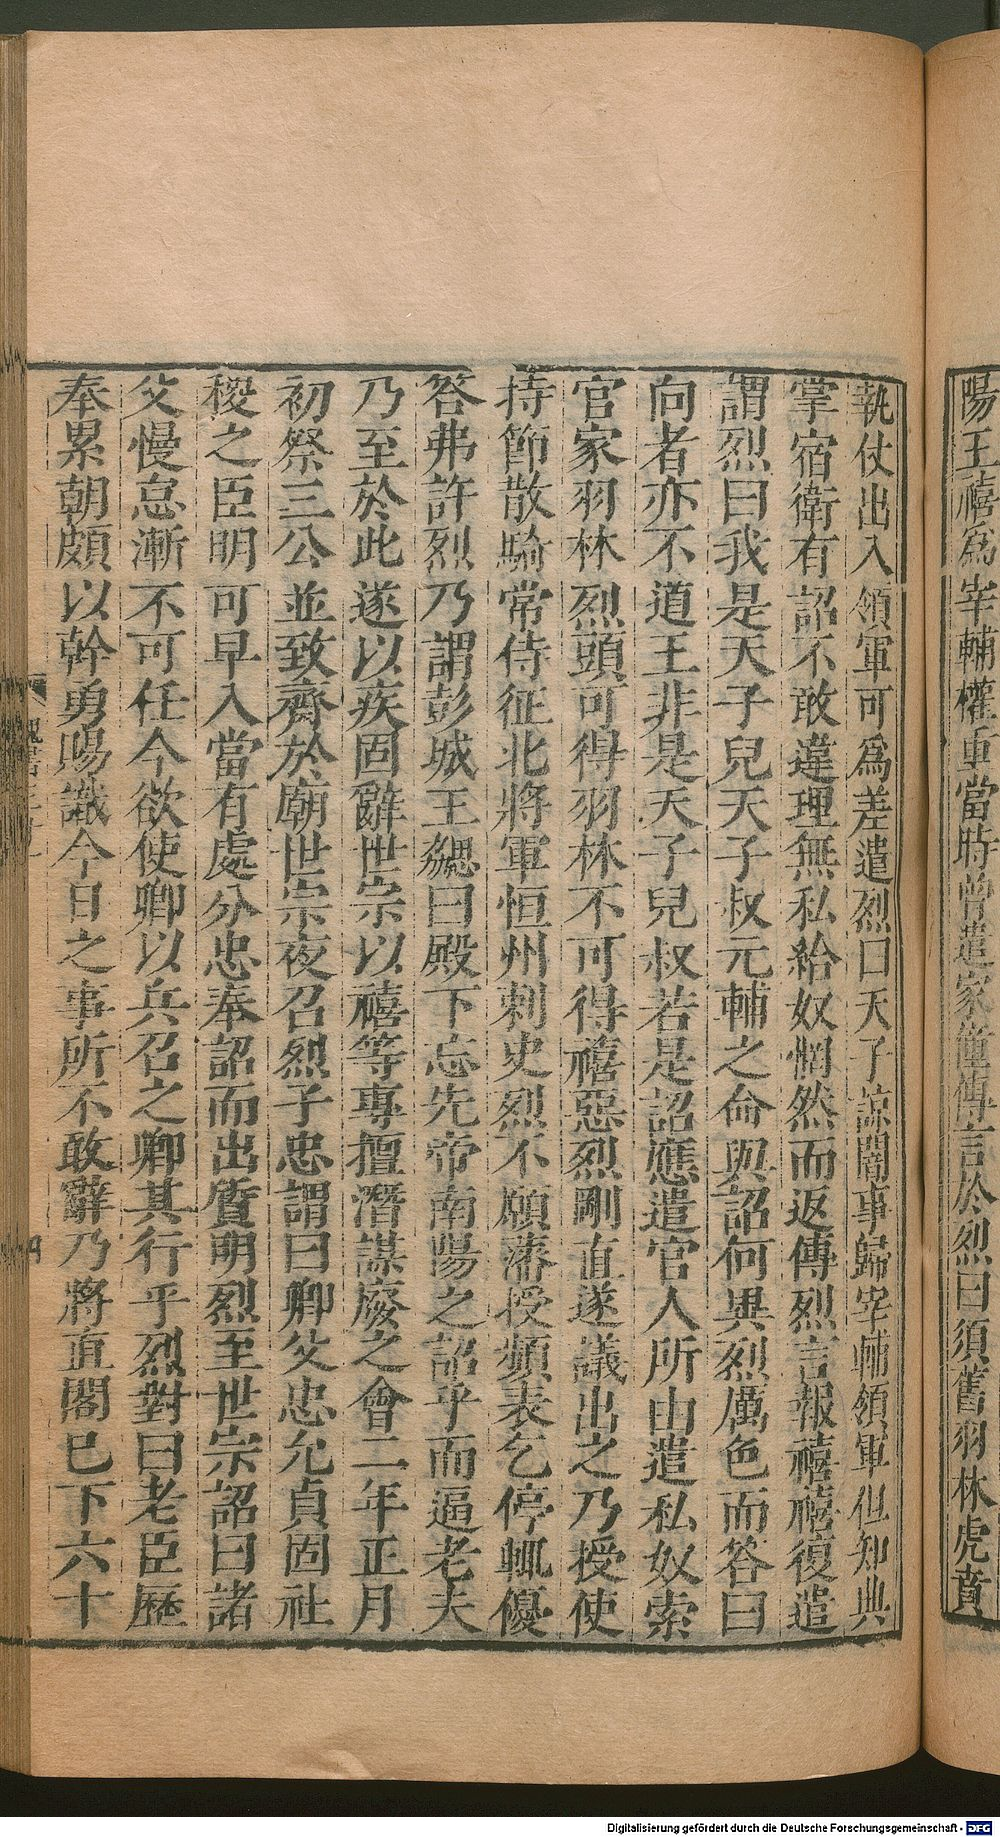 陽王禧爲宰輔權重當時曾遣家僮傳言於烈曰須舊羽林虎賁
執仗出入領軍可爲差遣烈曰天子諒闇事歸宰輔領軍但知典
掌宿衛有詔不敢違理無私給奴惘然而返傳烈言報禧禧復遣
謂烈曰我是天子兒天子叔元輔之命與詔何異烈厲色而答曰
向者亦不道王非是天子兒叔若是詔應遣官人所由遣私奴索
官家羽林烈頭可得羽林不可得禧惡烈剛直遂議出之乃授使
持節散騎常侍征北將軍恒州刺史烈不願藩授頻表乞停輒優
答弗許烈乃謂彭城王勰曰殿下忘先帝南陽之詔乎而逼老夫
乃至於此遂以疾固辭世宗以禧等專擅潛謀廢之會二年正月
初祭三公並致齋於廟世宗夜召烈子忠謂曰卿父忠允貞固社
稷之臣明可早入當有處分忠奉詔而出質明烈至世宗詔曰諸
父慢怠漸不可任今欲使卿以兵召之卿其行乎烈對曰老臣歷
奉累朝頗以幹勇賜識今日之事所不敢辭乃將直閤已下六十
Digitalisierung gefördert durch die Deutsche Forschungsgemeinschaft - DFG